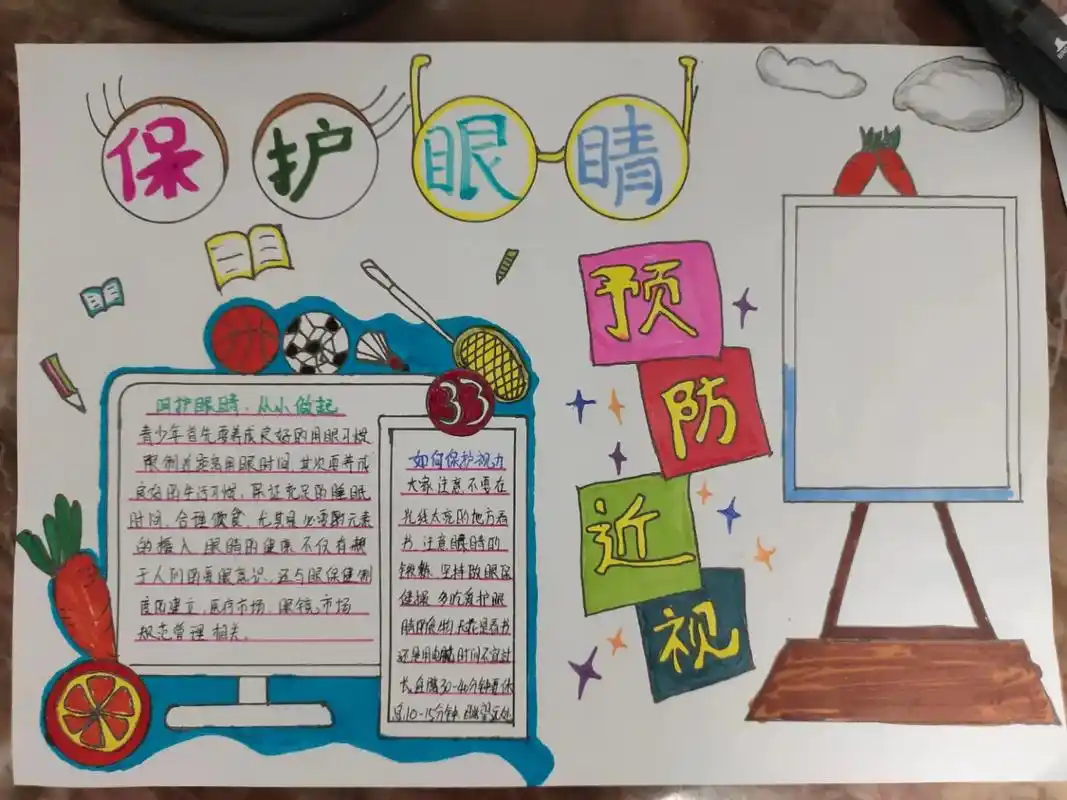 保护眼睛
预
防
近
视
33
呵护眼睛，从小做起
青少年首先要养成良好的用眼习惯
限制近距离用眼时间，其次要养成
良好的生活习惯，保证充足的睡眠
时间，合理饮食，尤其是必需元素
的摄入，眼睛的健康不仅有赖
于人们的爱眼意识，还与眼保健制
度的建立，医疗市场，眼镜市场
规范管理相关。
如何保护视力
大家注意不要在
光线太亮的地方看
书，注意眼睛的
坚持做眼保
健操，多吃爱护眼
睛的食物，无论是看书
还是用电脑时间不宜过
长，每隔30-40分钟要休
息10-15分钟，眺望远处